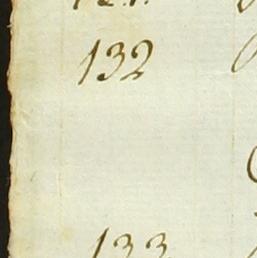 132
133